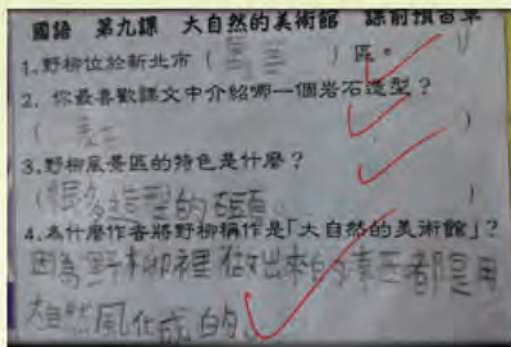 國語 第九課 大自然的美術館 課前預習單
1.野柳位於新北市(萬里)區。
2. 你最喜歡課文中介紹哪一個岩石造型?
3.野柳風景區的特色是什麼?
(很多造型的石頭。)
4.為什麼作者將野柳稱作是「大自然的美術館」?
因為野柳裡做出來的東西都是用
大自然風化成的。